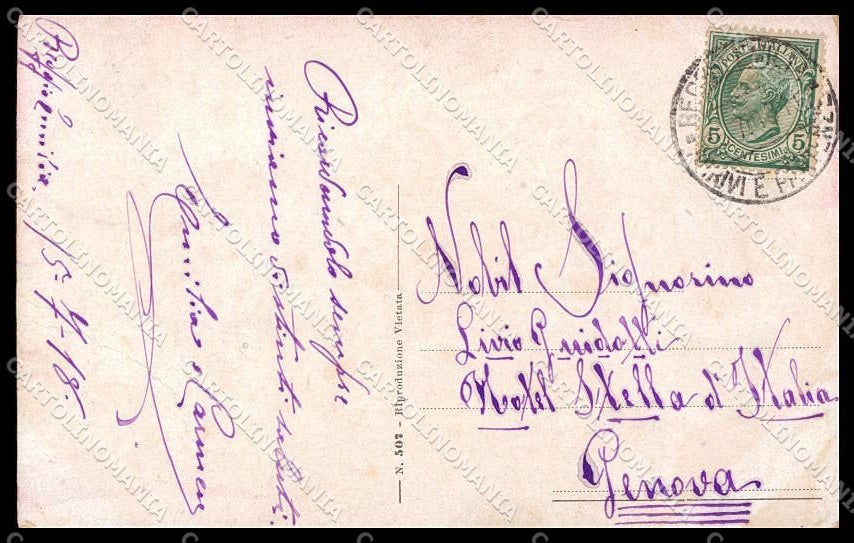 Reggio Emilia 15-7-18.
Ricordandolo sempre
inviamo distinti saluti.
Emilia e Carmen
N. 507 - Riproduzione Vietata
POSTE ITALIANE
5 CENTESIMI 5
ARRIVI E
Nobil Signorino
Livio Guidotti
Hotel Stella d'Italia
Genova
CARTOLINOMANIA